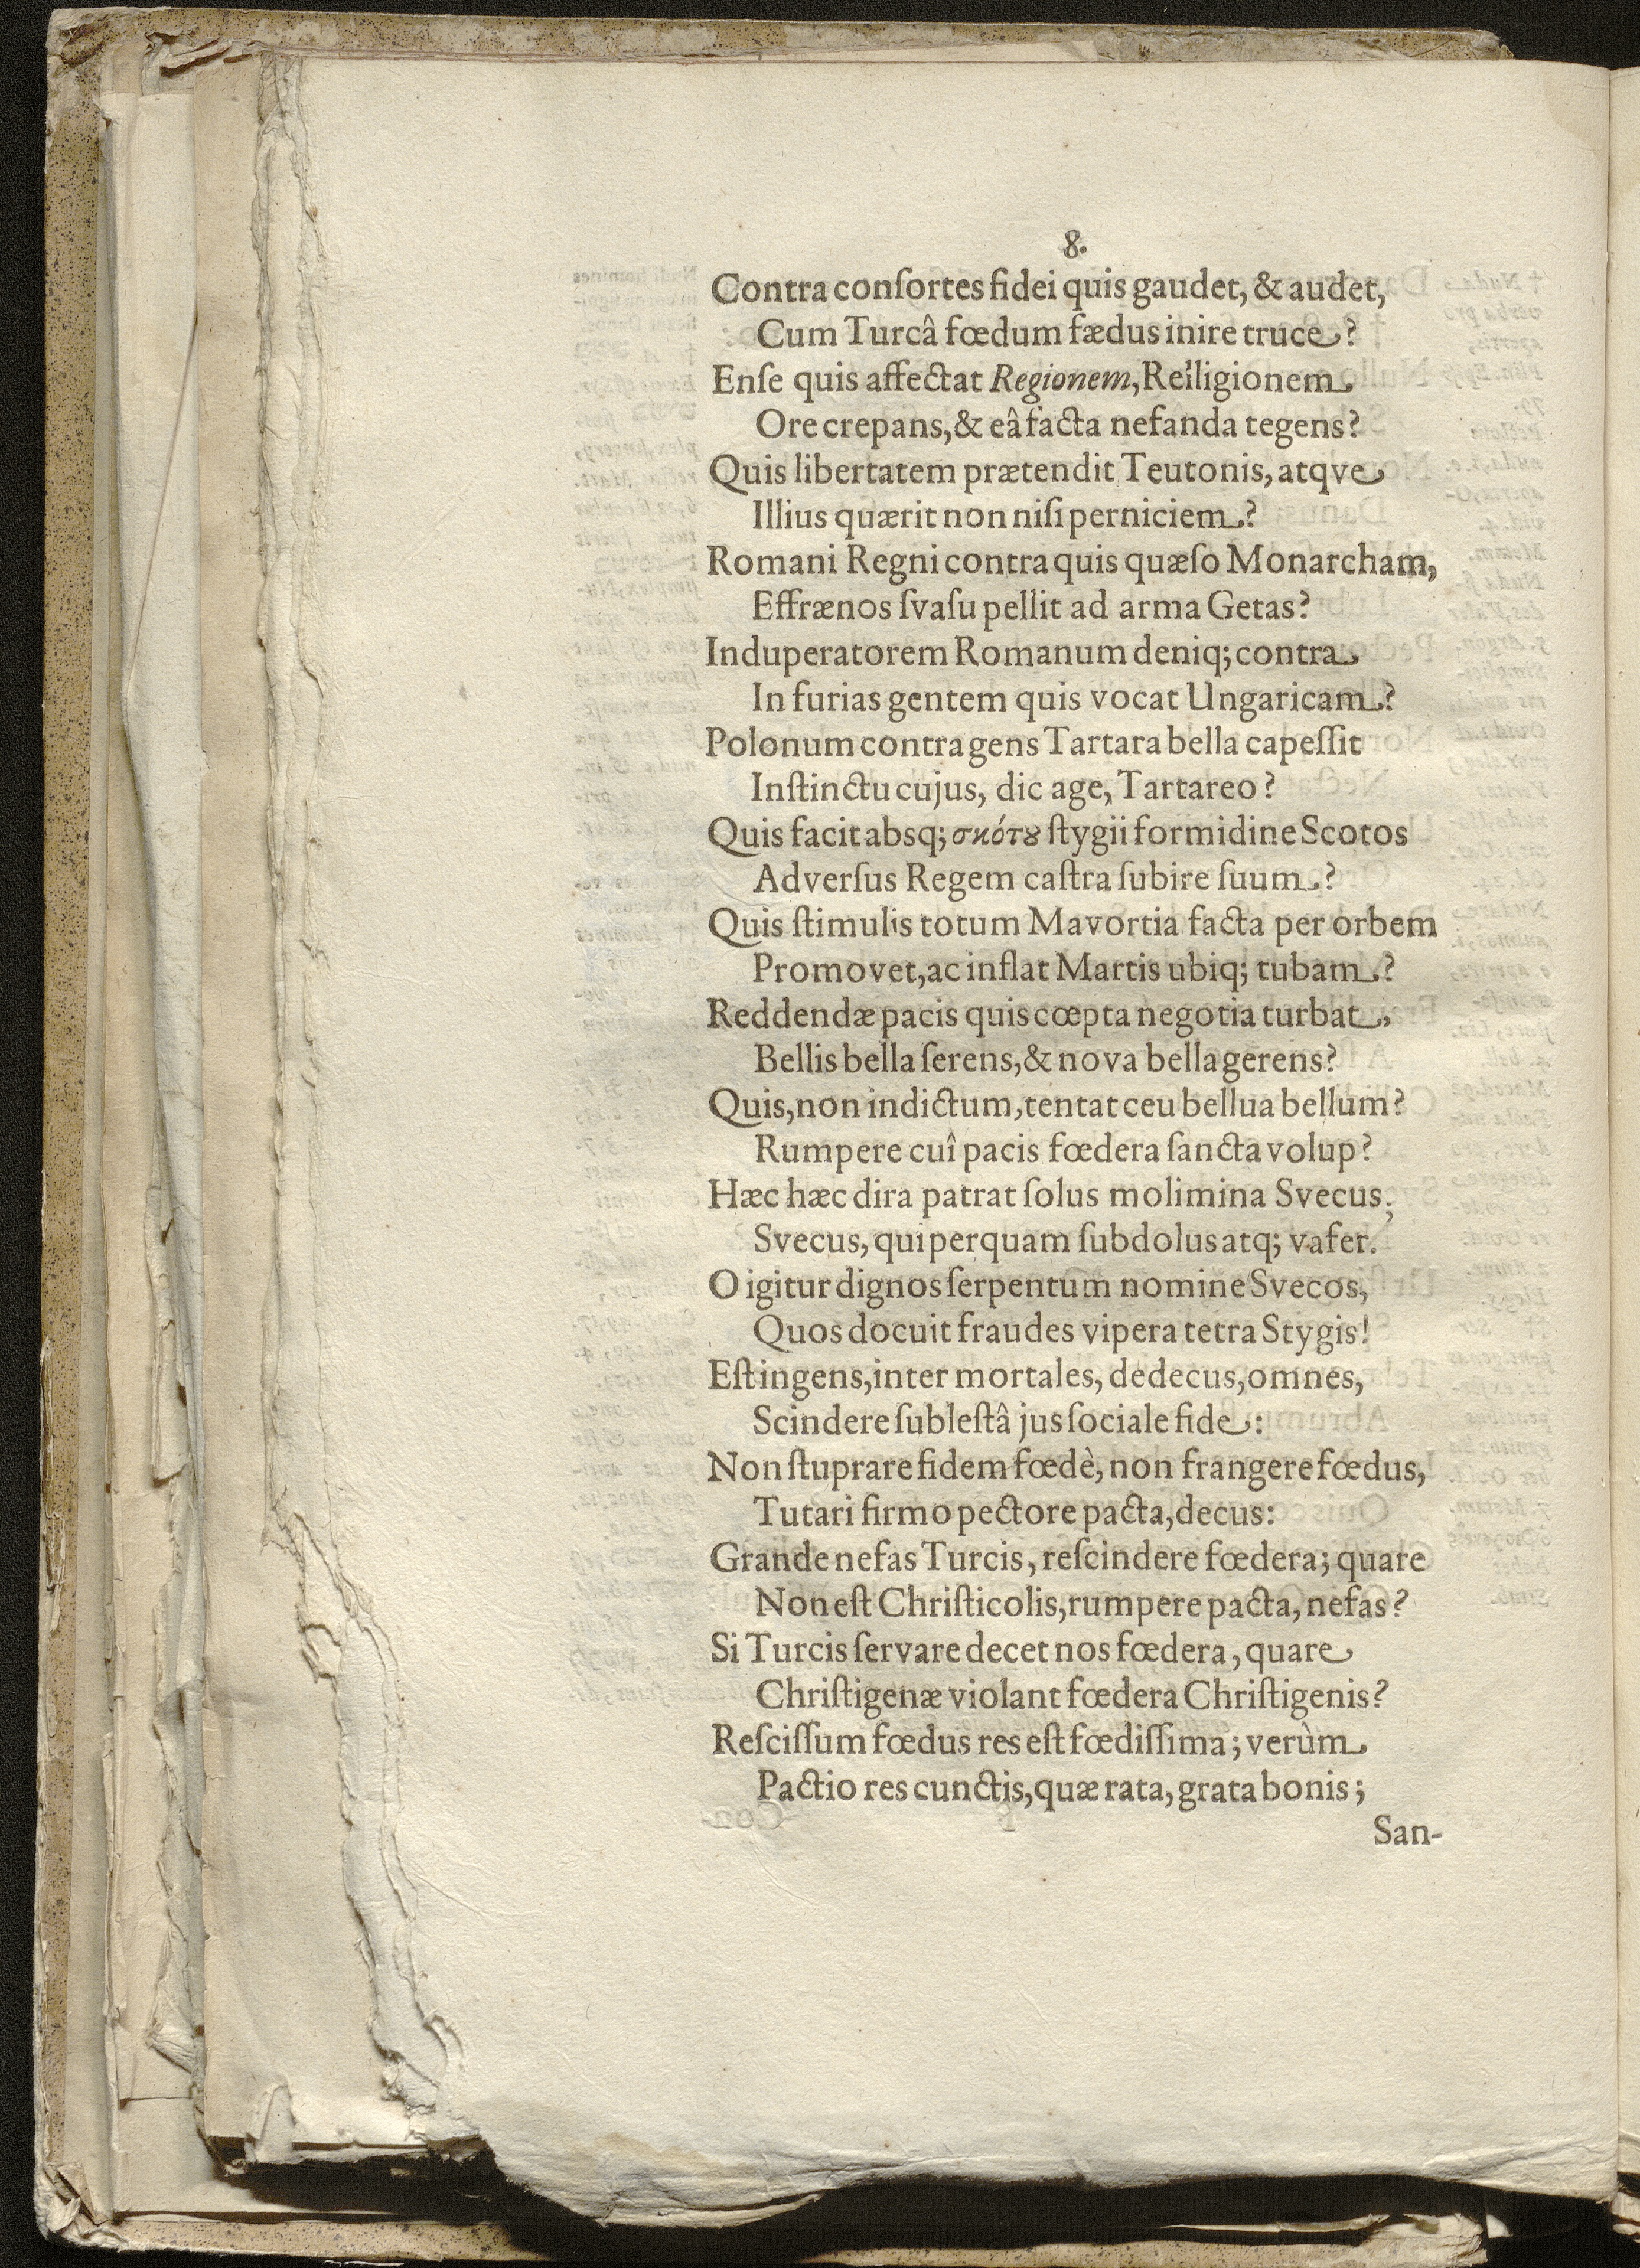 8.
Contra conſortes fidei quis gaudet, & audet,
Cum Turcâ fœdum fædus inire truce?
Enſe quis affectat Regionem, Relligionem
Ore crepans, & eâ facta nefanda tegens?
Quis libertatem prætendit Teutonis, atqve
Illius quærit non niſi perniciem?
Romani Regni contra quis quæſo Monarcham,
Effrænos ſvaſu pellit ad arma Getas?
Induperatorem Romanum deniq; contra
In furias gentem quis vocat Ungaricam?
Polonum contra gens Tartara bella capeſſit
Inſtinctu cujus, dic age, Tartareo?
Quis facit absq; σκότȣ ſtygii formidine Scotos
Adverſus Regem caſtra ſubire ſuum?
Quis ſtimulis totum Mavortia facta per orbem
Promovet, ac inflat Martis ubiq; tubam?
Reddendæ pacis quis cœpta negotia turbat,
Bellis bella ſerens, & nova bella gerens?
Quis, non indictum, tentat ceu bellua bellum?
Rumpere cuî pacis fœdera ſancta volup?
Hæc hæc dira patrat ſolus molimina Svecus;
Svecus, qui perquam ſubdolus atq; vafer.
O igitur dignos ſerpentum nomine Svecos,
Quos docuit fraudes vipera tetra Stygis!
Eſt ingens, inter mortales, dedecus, omnes,
Scindere ſubleſtâ jus ſociale fide:
Non ſtuprare fidem fœdè, non frangere fœdus,
Tutari firmo pectore pacta, decus:
Grande nefas Turcis, reſcindere fœdera; quare
Non eſt Chriſticolis, rumpere pacta, nefas?
Si Turcis ſervare decet nos fœdera, quare
Chriſtigenæ violant fœdera Chriſtigenis?
Reſciſſum fœdus res eſt fœdiſſima; verùm
Pactio res cunctis, quæ rata, grata bonis;
San-